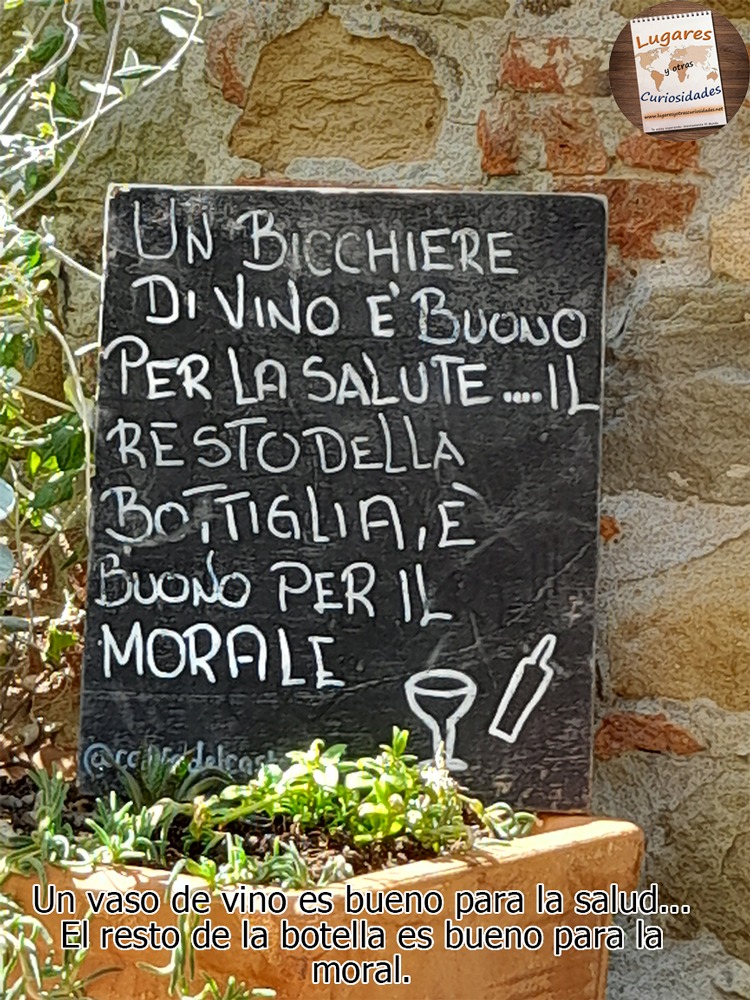 Lugares
y otras
Curiosidades
www.lugaresyotrascuriosidades.net
UN BICCHIERE
DI VINO E' BUONO
PER LA SALUTE....IL
RESTO DELLA
BOTTIGLIA, È
BUONO PER IL
MORALE
Un vaso de vino es bueno para la salud...
El resto de la botella es bueno para la
moral.